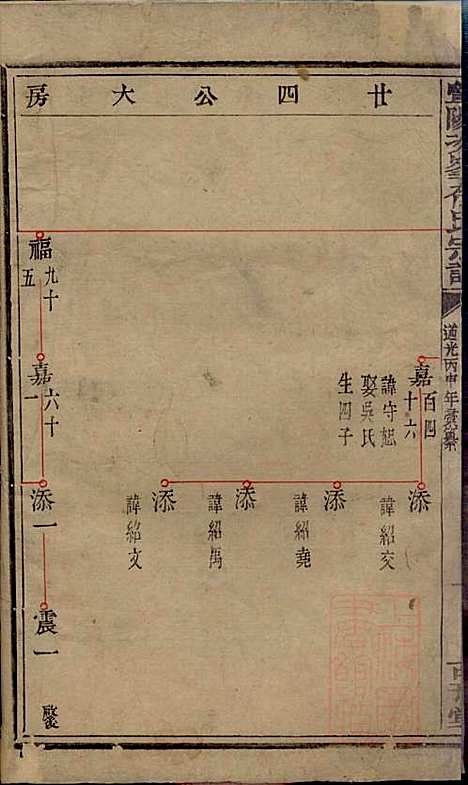 廿四公大房
道光丙申年
嘉
百四
十六
諱守旭
娶吳氏
生四子
添
諱紹交
添
諱紹堯
添
諱紹禹
添
諱紹文
福
九十
五
嘉
六十
一
添一
震一